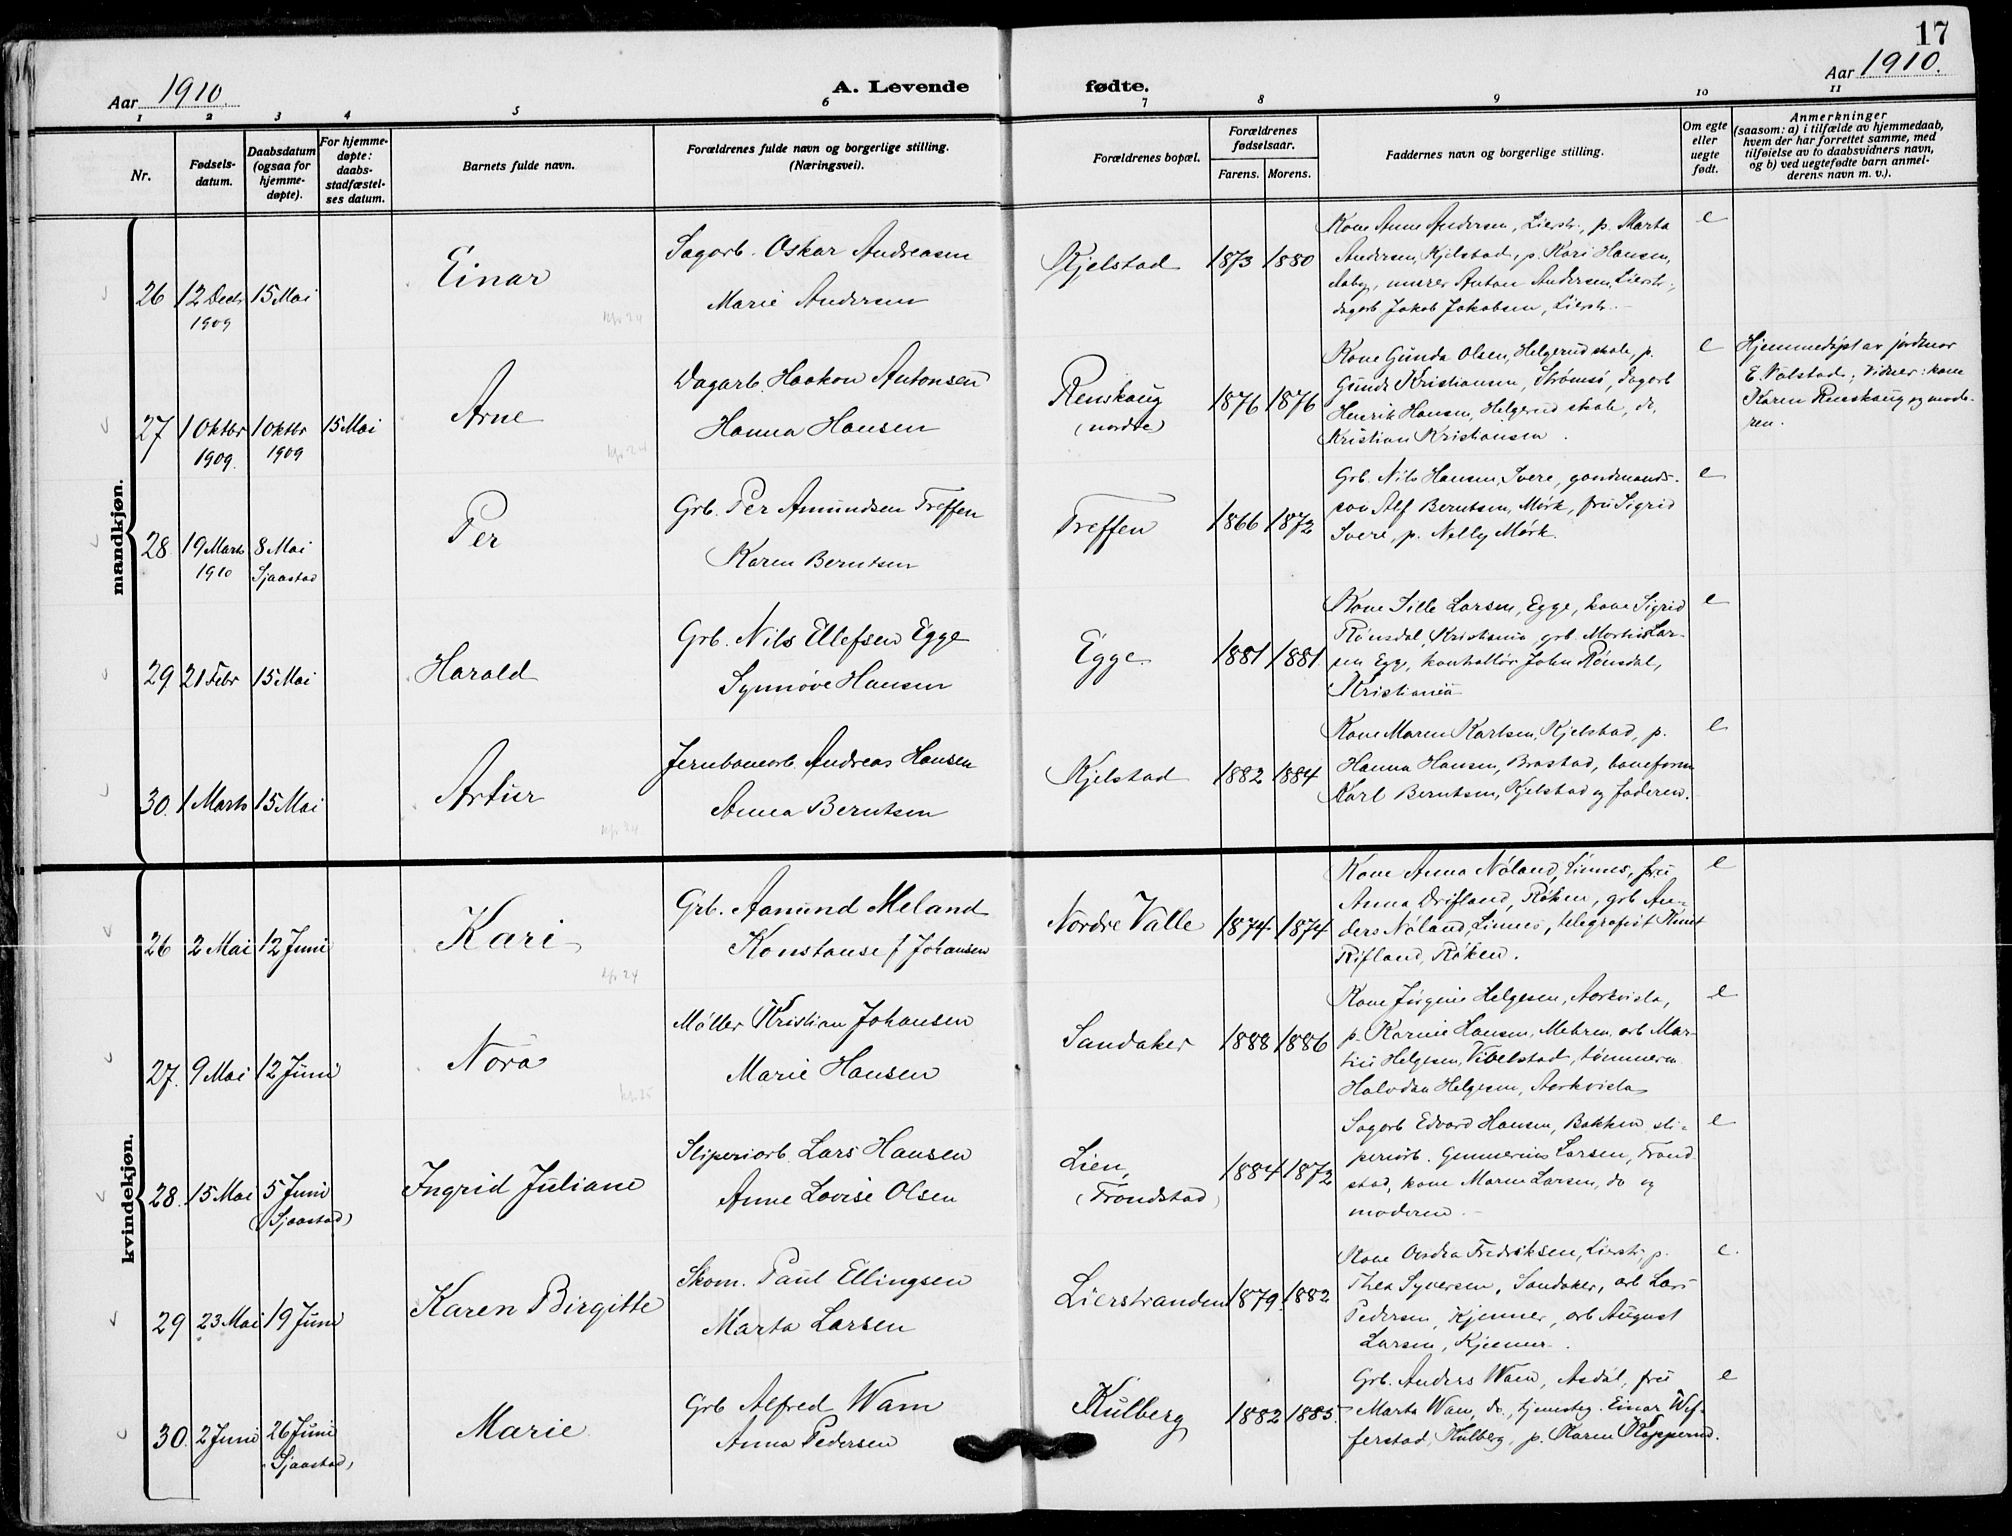 17
Aar 1910.
A. Levende fødte.
Aar 1910.
1 2 3 4 5 6 7 8 9 10 11
Nr.
Fødsels-
datum.
Daabsdatum
(ogsaa for
hjemme-
døpte).
For hjemme-
døpte:
daabs-
stadfæstel-
ses datum.
Barnets fulde navn.
Forældrenes fulde navn og borgerlige stilling.
(Næringsvei).
Forældrenes bopæl.
Forældrenes
fødselsaar.
Farens. Morens.
Faddernes navn og borgerlige stilling.
Om egte
eller
uegte
født.
Anmerkninger
(saasom: a) i tilfælde av hjemmedaab,
hvem der har forrettet samme, med
tilføielse av to daabsvidners navn,
og b) ved uegtefødte barn anmel-
derens navn m. v.).
mandkjøn.
26 12 Decbr 1909 15 Mai
Einar
Sagarb. Oskar Andreasen
Marie Andersen
Kjelstad 1873 1880
Kone Anne Andersen, Lierstr., p. Marta
Andersen, Kjelstad, p. Kari Hansen,
Aaby, murer Anton Andersen, Lierstr.,
dagarb Jakob Jakobsen, Lierstr.
e
27 1 Oktbr 1909. 1 Oktbr 1909 15 Mai
Arne
Dagarb. Haakon Antonsen
Hanna Hansen
Renskaug
(nordre)
1876 1876
Kone Gunda Olsen, Helgerud skole, p.
Gunda Kristiansen, Strømsø, dagarb
Henrik Hansen, Helgerud skole, do,
Kristian Kristiansen.
e
Hjemmedøpt av jordmor
E. Valstad; vidner: kone
Karen Renskaug og mode-
ren.
28 19 Marts 1910 8 Mai Sjaastad
Per
Grb. Per Amundsen Treffen
Karen Berntsen
Treffen 1866 1872
Grb. Nils Hansen, Svere, gaardmands-
søn Alf Berntsen, Mørk, fru Sigrid
Svere, p. Nelly Mørk.
e
29 21 Febr 15 Mai
Harald
Grb. Nils Ellefsen Egge
Synnøve Hansen
Egge 1881 1881
Kone Sille Larsen, Egge, kone Sigrid
Rønsdal, Kristiania, grb. Martin Lar-
sen Egge, kontorist John Rønsdal,
Kristiania
e
30. 1 Marts 15 Mai
Artur
Jernbanearb. Andreas Hansen
Anna Berntsen
Kjelstad 1882 1884
Kone Maren Karlsen, Kjelstad, p.
Hanna Hansen, Brastad, baneform
Karl Berntsen, Kjelstad og faderen.
e
kvindekjøn.
26 2 Mai 12 Juni
Kari
Grb. Aamund Meland
Konstanse f Johansen
Nordre Valle 1874 1874
Kone Anna Nøland, Linnes, fru
Anna Drifland, Røken, grb An-
ders Nøland, Linnes, telegrafist Knut
Rifland, Røken.
e
27. 9 Mai 12 Juni
Nora
Møller Kristian Johansen
Marie Hansen
Sandaker 1888 1886
Kone Jørgine Helgesen, Aarkvisla,
p. Karnie Hansen, Mehren, arb Mar-
tin Helgesen, Vivelstad, tømmerm
Halvdan Helgesen, Aarkvisla
e
28. 15 Mai 5 Juni (Sjaastad)
Ingrid Juliane
Sliperiarb. Lars Hansen
Anne Lovise Olsen
Lien,
(Trondstad)
1884 1872
Sagarb Edvard Hansen, Bakken, sli-
periarb. Gunnerius Larsen, Trond-
stad, kone Maren Larsen, do og
moderen.
e
29 23 Mai 19 Juni
Karen Birgitte
Skom. Paul Ellingsen
Marta Larsen
Lierstranden 1879. 1882
Kone Fredriksen, Lierstr, p.
Thea Syversen, Sandaker, arb Lars
Pedersen, Kjenner, arb August
Larsen, Kjenner.
e.
30. 2 Juni 26 Juni (Sjaastad)
Marie
Grb Alfred Wam
Anna Pedersen
Kulberg 1882 1885
Grb. Anders Wam, Asdøl, fru
Marta Wam, do., tjenesteg. Einar Wef-
ferstad, Kulberg, p. Karen Kopperud.
e